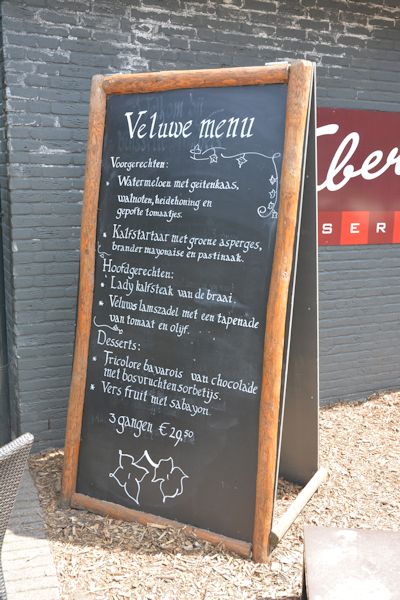 Veluwe menu
Voorgerechten:
* Watermeloen met geitenkaas,
walnoten, heidehoning en
gepofte tomaatjes.
* Kalfstartaar met groene asperges,
brander mayonaise en pastinaak.
Hoofdgerechten:
* Lady kalfsteak van de braai.
* Veluws lamszadel met een tapenade
van tomaat en olijf.
Desserts:
* Tricolore bavarois van chocolade
met bosvruchten sorbetijs.
* Vers fruit met sabayon.
3 gangen €29,50